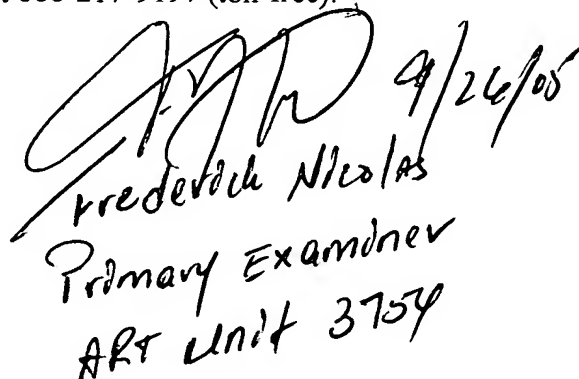 (toll-free).
9/26/05
Frederick Nicolas
Primary Examiner
ART Unit 3754